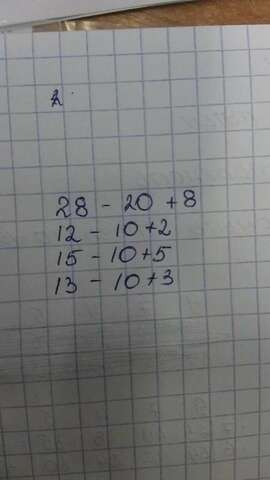 2.
28 - 20 + 8
12 - 10 + 2
15 - 10 + 5
13 - 10 + 3